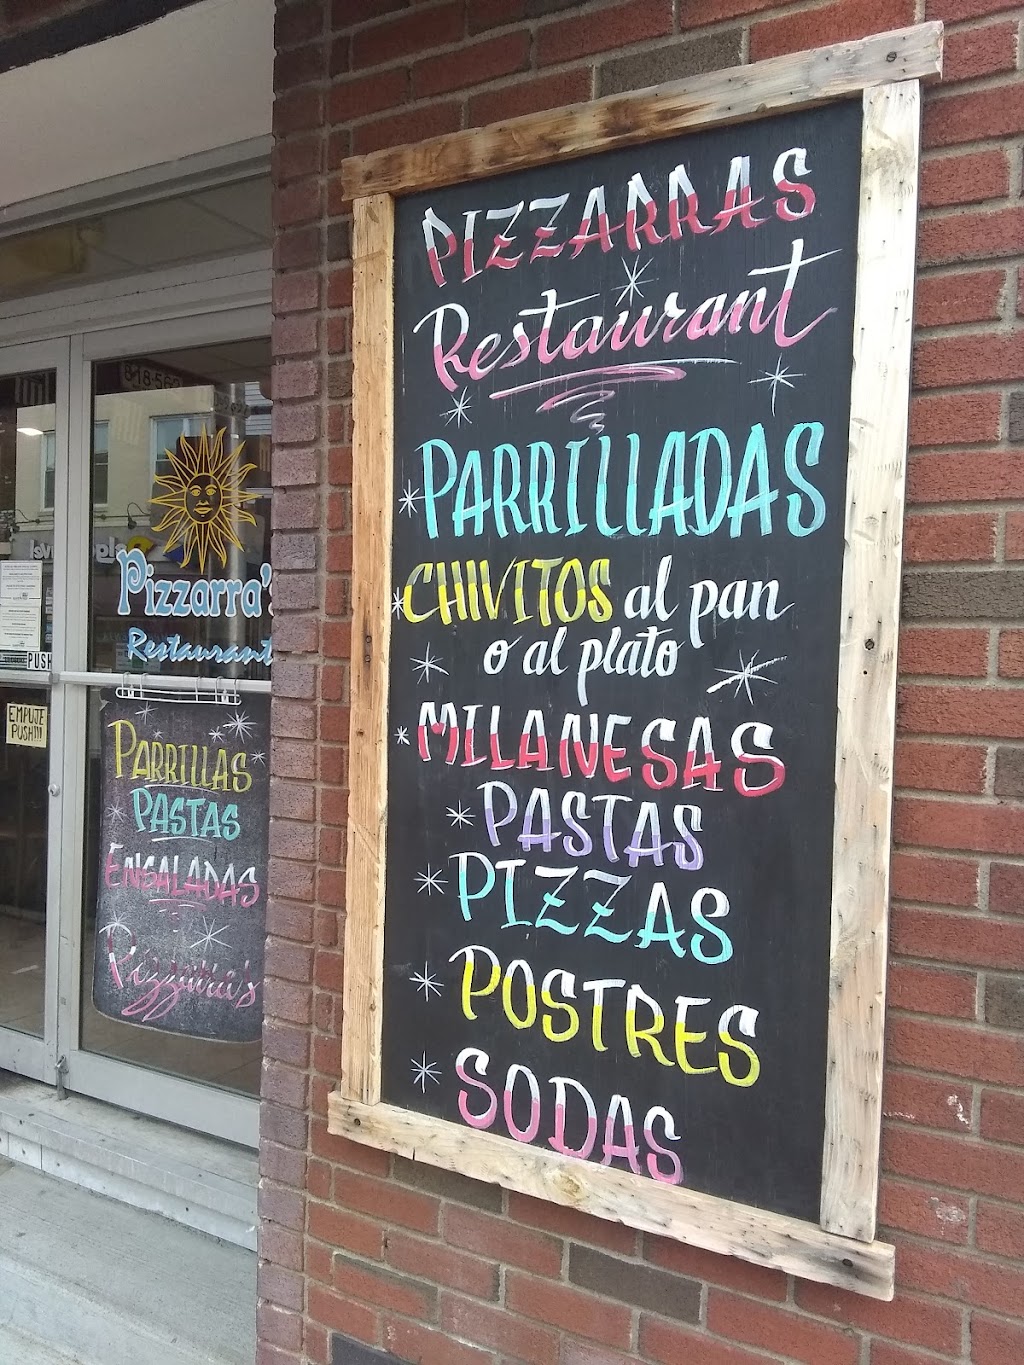 PIZZARRAS
Restaurant
PARRILLADAS
CHIVITOS al pan
o al plato
MILANESAS
PASTAS
PIZZAS
POSTRES
SODAS
Pizzarra's
Restaurant
PUSH
EMPUJE
PUSH!!!
PARRILLAS
PASTAS
ENSALADAS
Pizzarra's